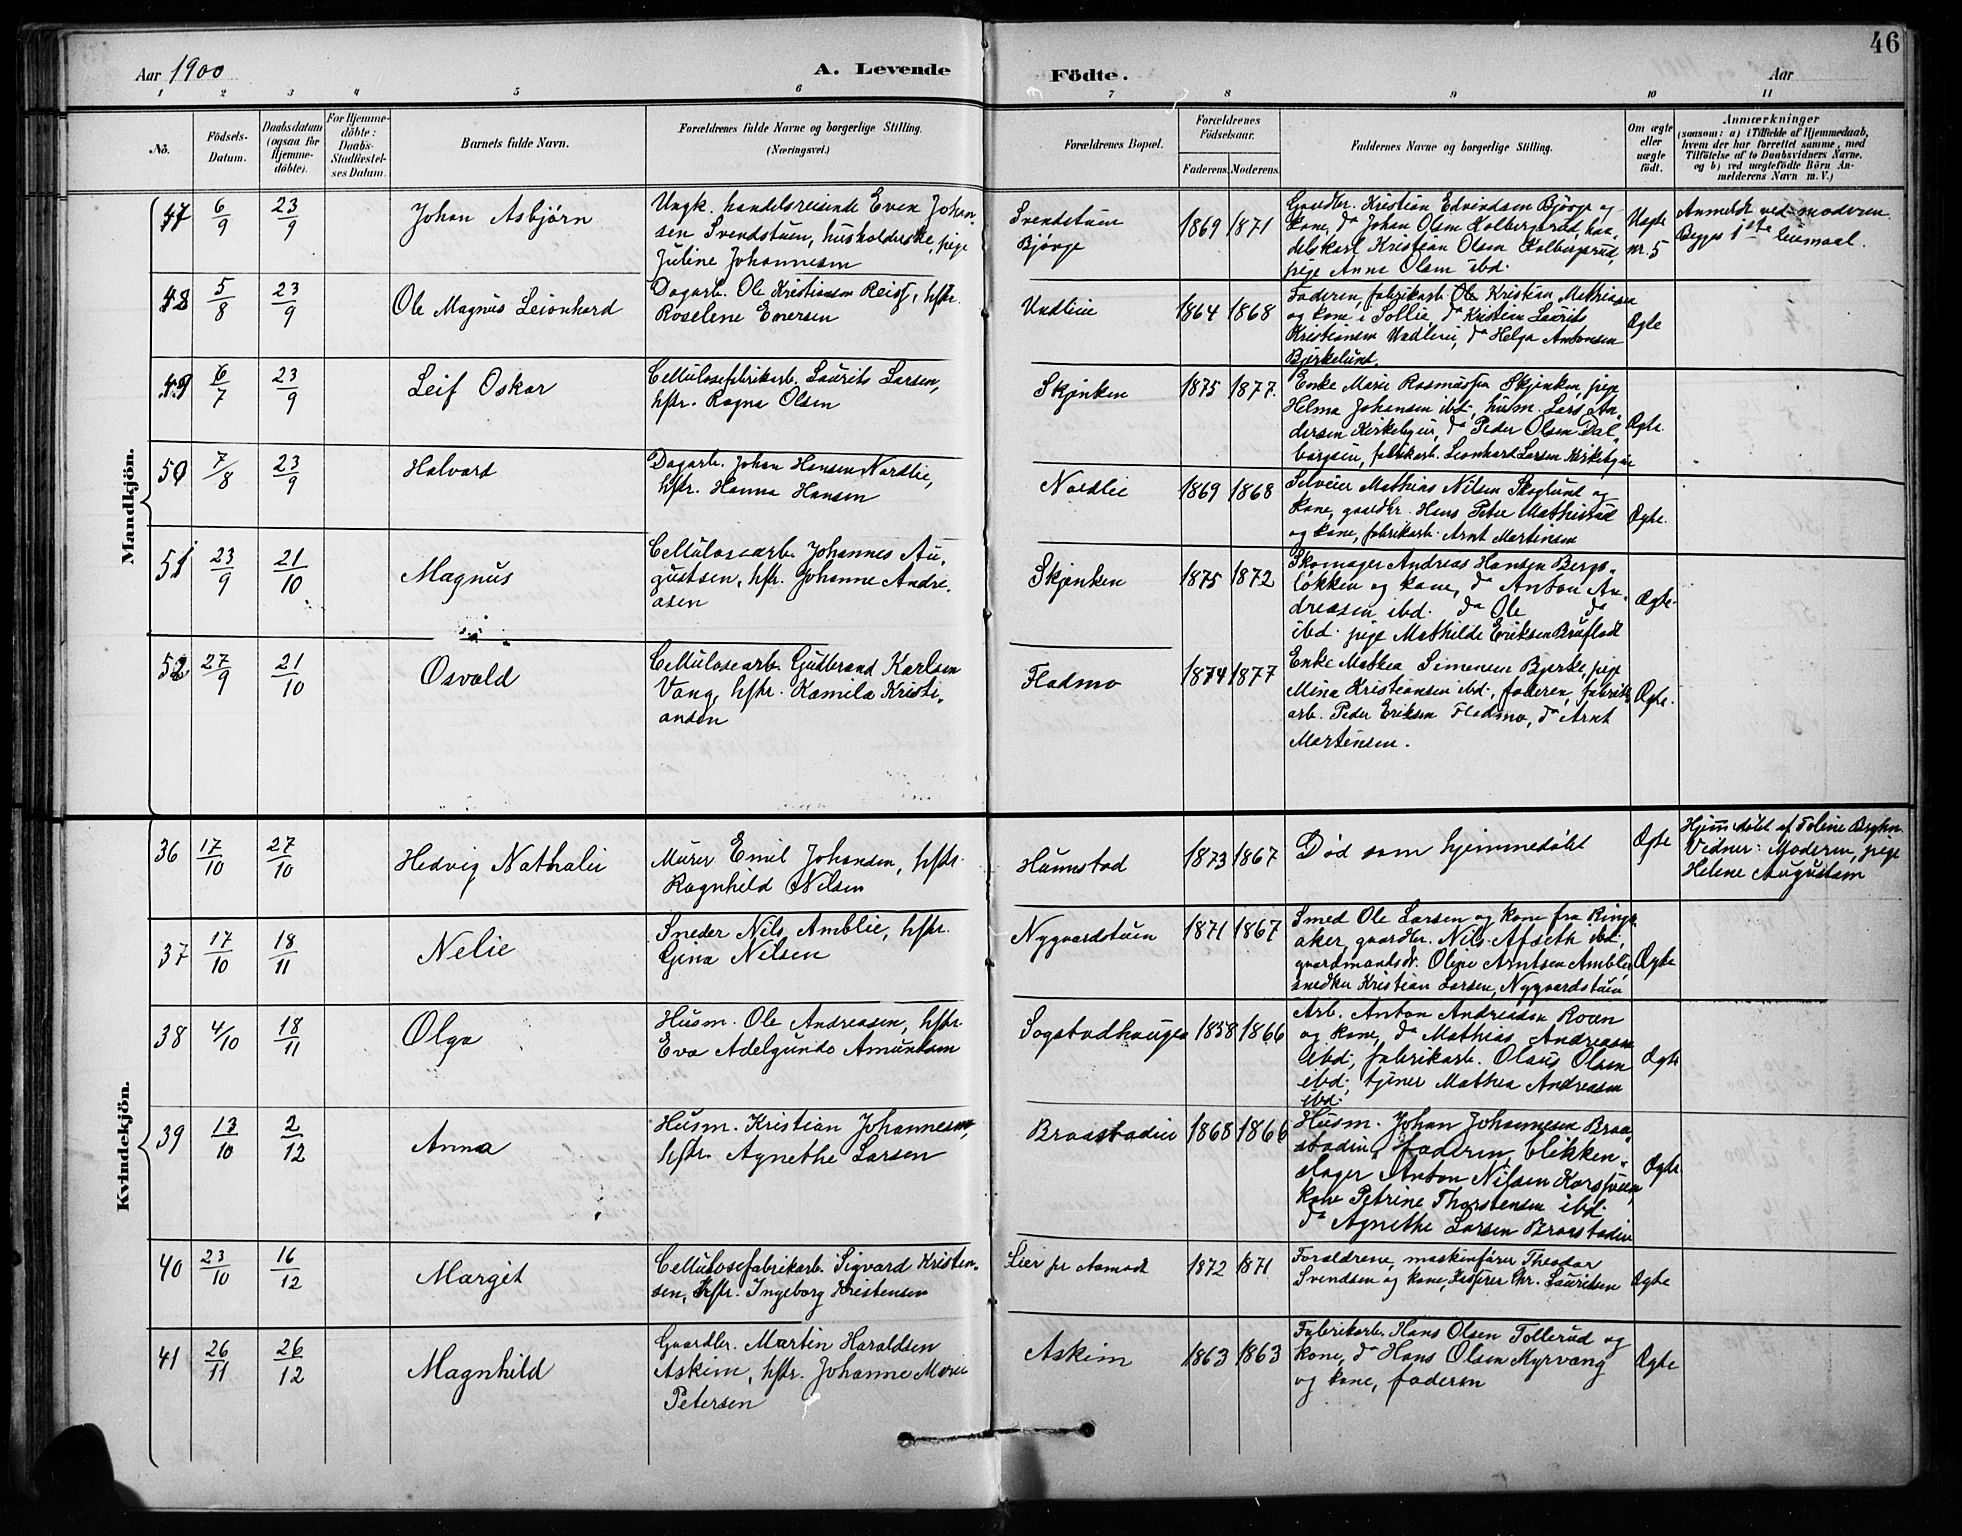 46
Aar 1900
A. Levende Födte.
Aar
1 2 3 4 5 6 7 8 9 10 11
No.
Födsels-Datum.
Daabsdatum (ogsaa for Hjemme-döbte).
For Hjemme-döbte: Daabs-Stadfæstel-ses Datum.
Barnets fulde Navn.
Forældrenes fulde Navne og borgerlige Stilling.
(Næringsvei.)
Forældrenes Bopæl.
Forældrenes Födselsaar.
Faderens Moderens
Faddernes Navne og borgerlige Stilling.
Om ægte eller uægte födt.
Anmærkninger
(saasom: a) i Tilfælde af Hjemmedaab,
hvem der har forrettet samme, med
Tilföielse af to Daabsvidners Navne.
og b) ved uægtefödte Börn An-
melderens Navn m. V.)
Mandkjön.
47 6/9 23/9 Johan Asbjørn
Ungk. handelsreisende Even Johan-
sen Svendstuen, husholderske, pige
Juline Johannesen
Svendstuen
Bjørge
1869 1871
Gaardbr. Kristian Edvindsen Bjørge og
kone, do Johan Olsen Kolbergsrud, han-
delskarl Kristian Olsen Kolbergsrud,
pige Anne Olsen ibd.
Uægte
nr. 5
Anmeldt ved moderen
Begges 1ste leiermaal.
48 5/8 23/9 Ole Magnus Leionhard
Dagarb. Ole Kristiansen Reist, hstr.
Roselene Enersen
Undlien
1864 1868
Faderen, fabrikarb. Ole Kristian Mathiasen
og kone i Sollie, do Kristian Laurits
Kristiansen Undlien, do Helga Antonsen
Bjerkelund.
Ægte
49 6/7 23/9 Leif Oskar
Cellulosefabrikarb. Laurits Larsen,
hstr. Ragna Olsen
Skjenken
1875 1877.
Enke Marie Rasmussen Skjenken, pige
Helma Johansen ibd., husm. Lars An-
dersen Kirkebyeie, do Peder Olsen Dal-
borgseie, fabrikarb. Leonhard Larsen Kirkebyeie
Ægte.
50 7/8 23/9 Halvard
Dagarb. Johan Hansen Nordlie,
hstr. Hanna Hansen
Nordlie
1869 1868
Selveier Mathias Nilsen Skoglund og
kone, gaardbr. Hans Peter Mathisrud
og kone, fabrikarb. Arnt Martinsen
Ægte.
51 23/9 21/10 Magnus
Cellulosearb. Johannes Au-
gustsen, hstr. Johanne Andre-
asen
Skjenken
1875 1872
Skomager Andreas Hansen Bergs-
løkken og kone, do Anton An-
dreasen ibd. do Ole do
ibd. pige Mathilde Eriksen Bruflodt
Ægte.
52 27/9 21/10 Osvald
Cellulosearb. Gudbrand Karlsen
Vang, hstr. Kamila Kristi-
ansen
Fladmo
1874 1877
Enke Mathea Simensen Bjerke, pige
Mina Kristiansen ibd., faderen, fabrik-
arb. Peder Eriksen Fladmo, do Arnt
Martinsen.
Ægte.
Kvindekjön.
36 17/10 27/10 Hedvig Nathalie
Murer Emil Johansen, hstr.
Ragnhild Nilsen
Hunnstad
1873 1867
Død som hjemmedøbt
Ægte
Hjemmedøbt af Toline
Vidner: Moderen, pige
Helene Augustsen
37 17/10 18/11 Nelie
Sneder Nils Amblie, hstr.
Gina Nilsen
Nygaardstuen
1871 1867
Smed Ole Larsen og kone fra Rings-
aker, gaardbr. Nils Afseth ibd.,
gaardmandsd. Oline Arntsen Amblie,
snedker Kristian Larsen, Nygaardstuen
Ægte
38 4/10 18/11 Olga
Husm. Ole Andreasen, hstr.
Eva Adelgunde Amundsen
Sogstadhaugen
1858 1866
Arb. Anton Andreasen Roen
og kone, do Mathias Andreasen
ibd., fabrikarb. Olaus Olsen
ibd., tjener Mathea Andreasen
ibd.
Ægte
39 13/10 2/12 Anna
Husm. Kristian Johannesen,
hstr. Agnethe Larsen
Braastadeie
1868 1866
Husm. Johan Johannesen Braa-
stadeie, faderen, blikken-
slager Anton Nilsen Korsveien,
kone Petrine Thorstensen ibd.
do Agnethe Larsen Braastadeie
Ægte
40 23/10 16/12 Margit
Cellulosefabrikarb. Sigvard Kristen-
sen, hstr. Ingeborg Kristensen
Lier pr Aamodt
1872 1871
Forældrene, maskinfører Theodor
Svendsen og kone, Chr. Lauritsen
Ægte
41 26/11 26/12 Magnhild
Gaardbr. Martin Haraldsen
Askim, hstr. Johanne Marie
Petersen
Askim
1863 1863
Fabrikarb. Hans Olsen Tollerud og
kone, do Hans Olsen Myrvang
og kone, faderen
Ægte